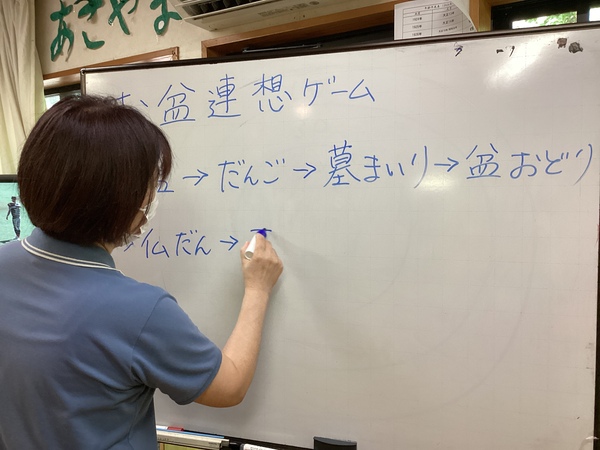 あきやま
お盆連想ゲーム
盆→だんご→墓まいり→盆おどり
→仏だん→